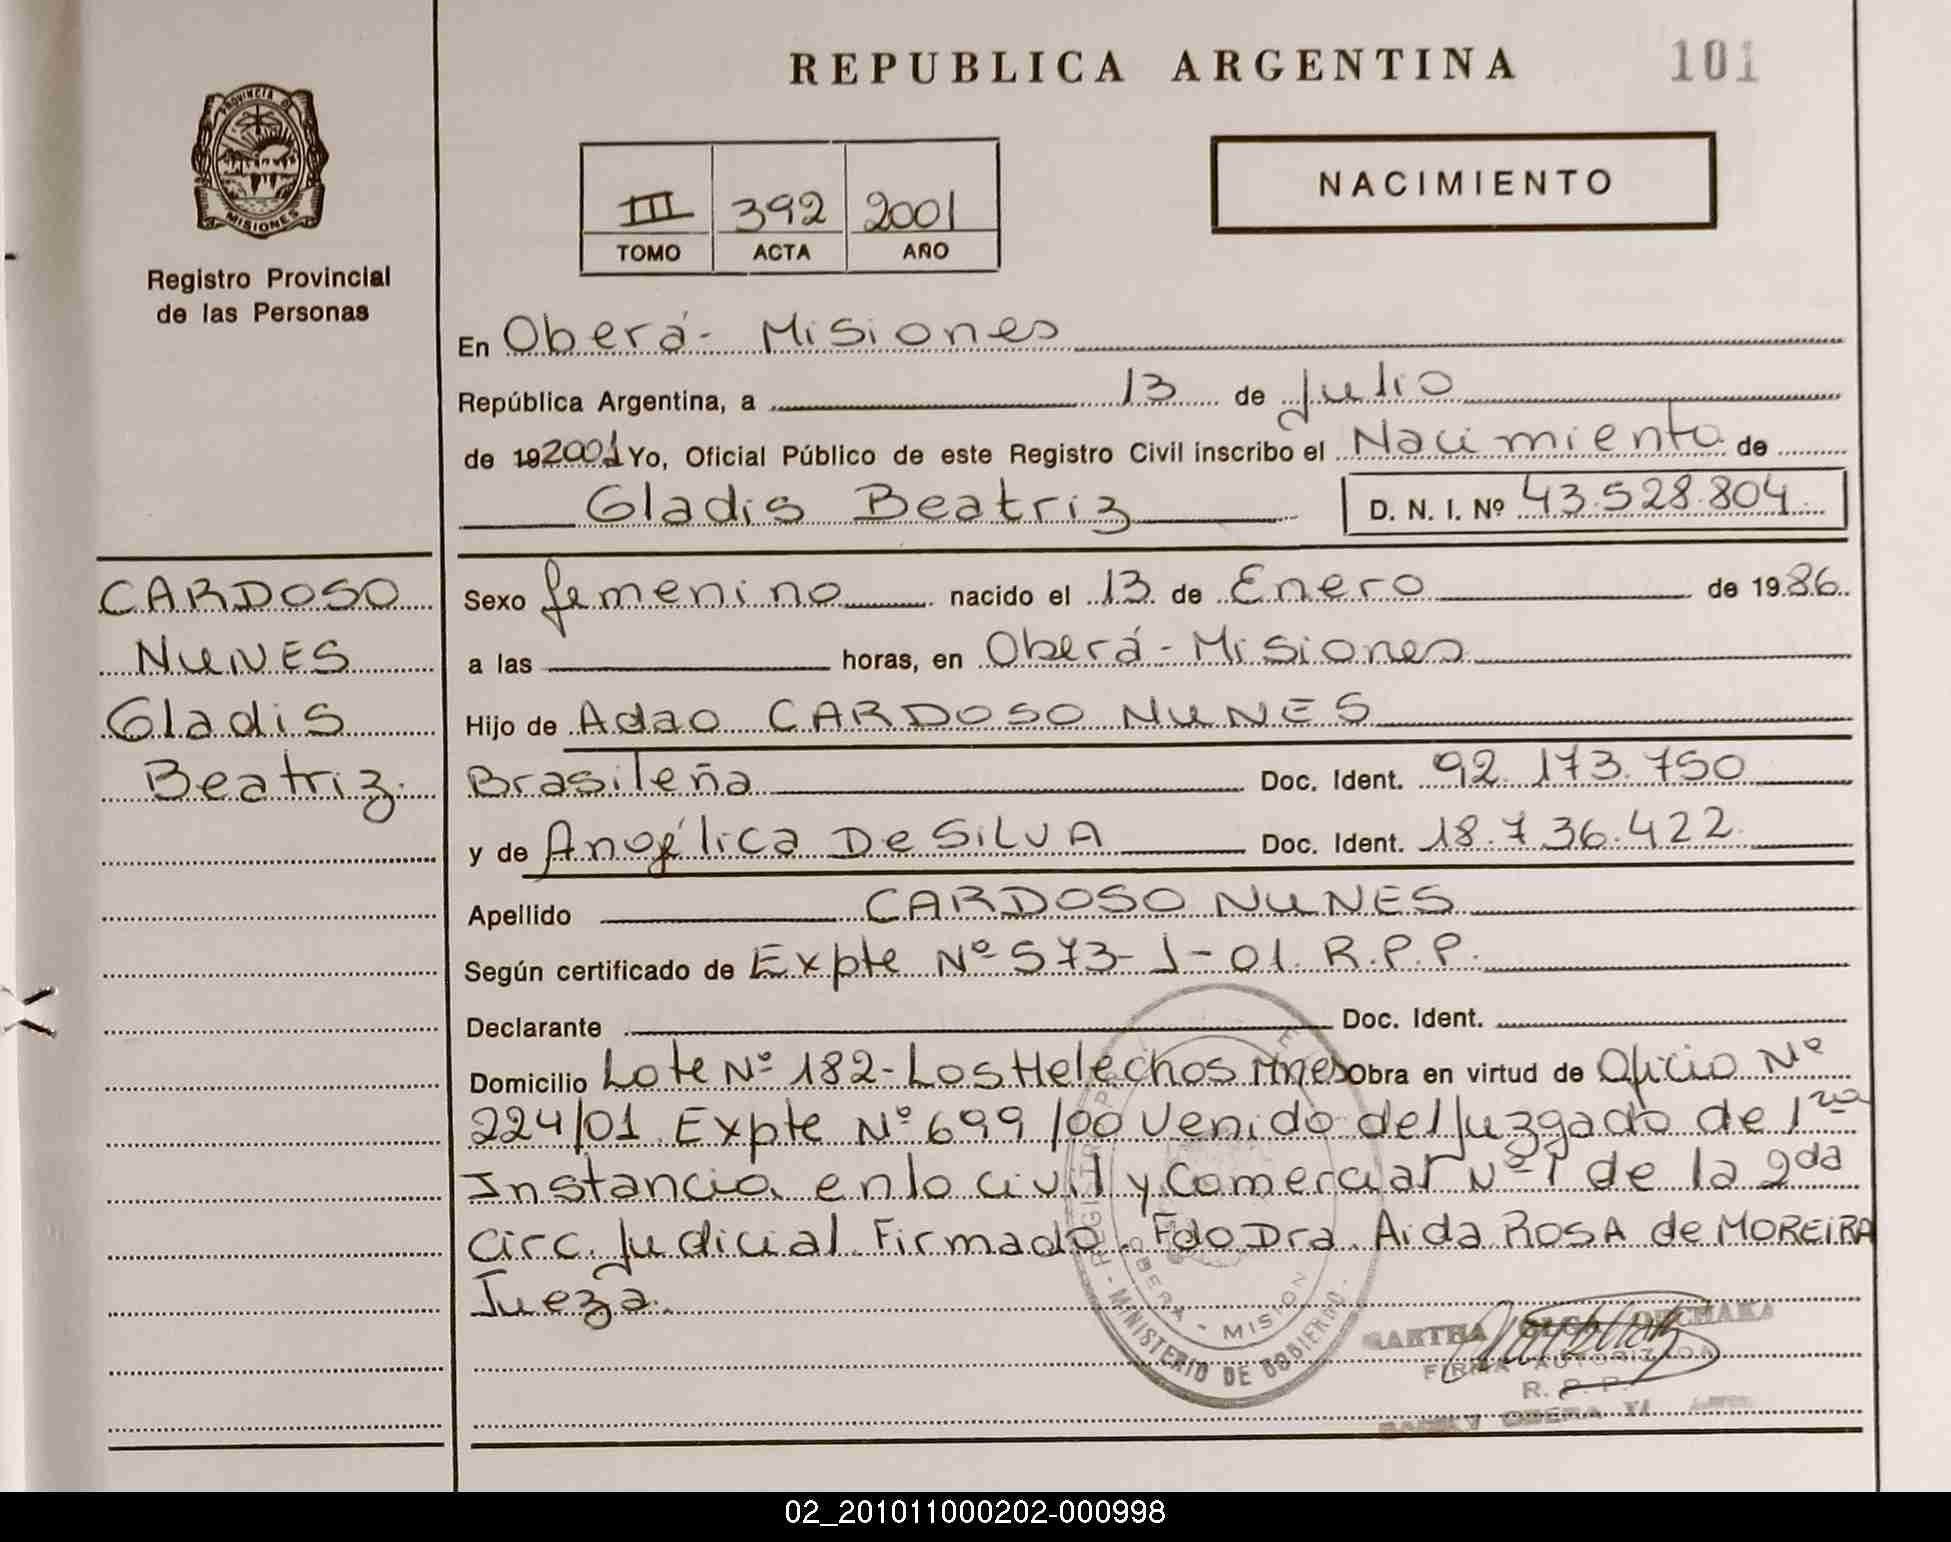 REPUBLICA ARGENTINA
101
PROVINCIA DE
MISIONES
Registro Provincial
de las Personas
III 392 2001
TOMO ACTA AÑO
NACIMIENTO
En Oberá - Misiones
República Argentina, a 13 de Julio
de 192001 Yo, Oficial Público de este Registro Civil inscribo el Nacimiento de
Gladis Beatriz D. N. I. Nº 43.528.804
CARDOSO
NUNES
Gladis
Beatriz.
Sexo femenino nacido el 13 de Enero de 1986.
a las horas, en Oberá - Misiones
Hijo de Adao CARDOSO NUNES
Brasileña Doc. Ident. 92.173.750
y de Angélica De SILVA Doc. Ident. 18.736.422
Apellido CARDOSO NUNES
Según certificado de Expte Nº 573-J-01. R.P.P.
Declarante Doc. Ident.
Domicilio Lote Nº 182 - Los Helechos Mnes Obra en virtud de Oficio Nº
224/01 Expte Nº 699/00 Venido del Juzgado de 1ra
Instancia en lo civil y Comercial Nº 1 de la 2da
Circ. Judicial. Firmado. Fdo Dra. Aida ROSA de MOREIRA
Jueza.
OBERA - MISION
MINISTERIO DE GOBIERNO
FIRMA AUTORIZADA
R. P. P.
02_201011000202-000998